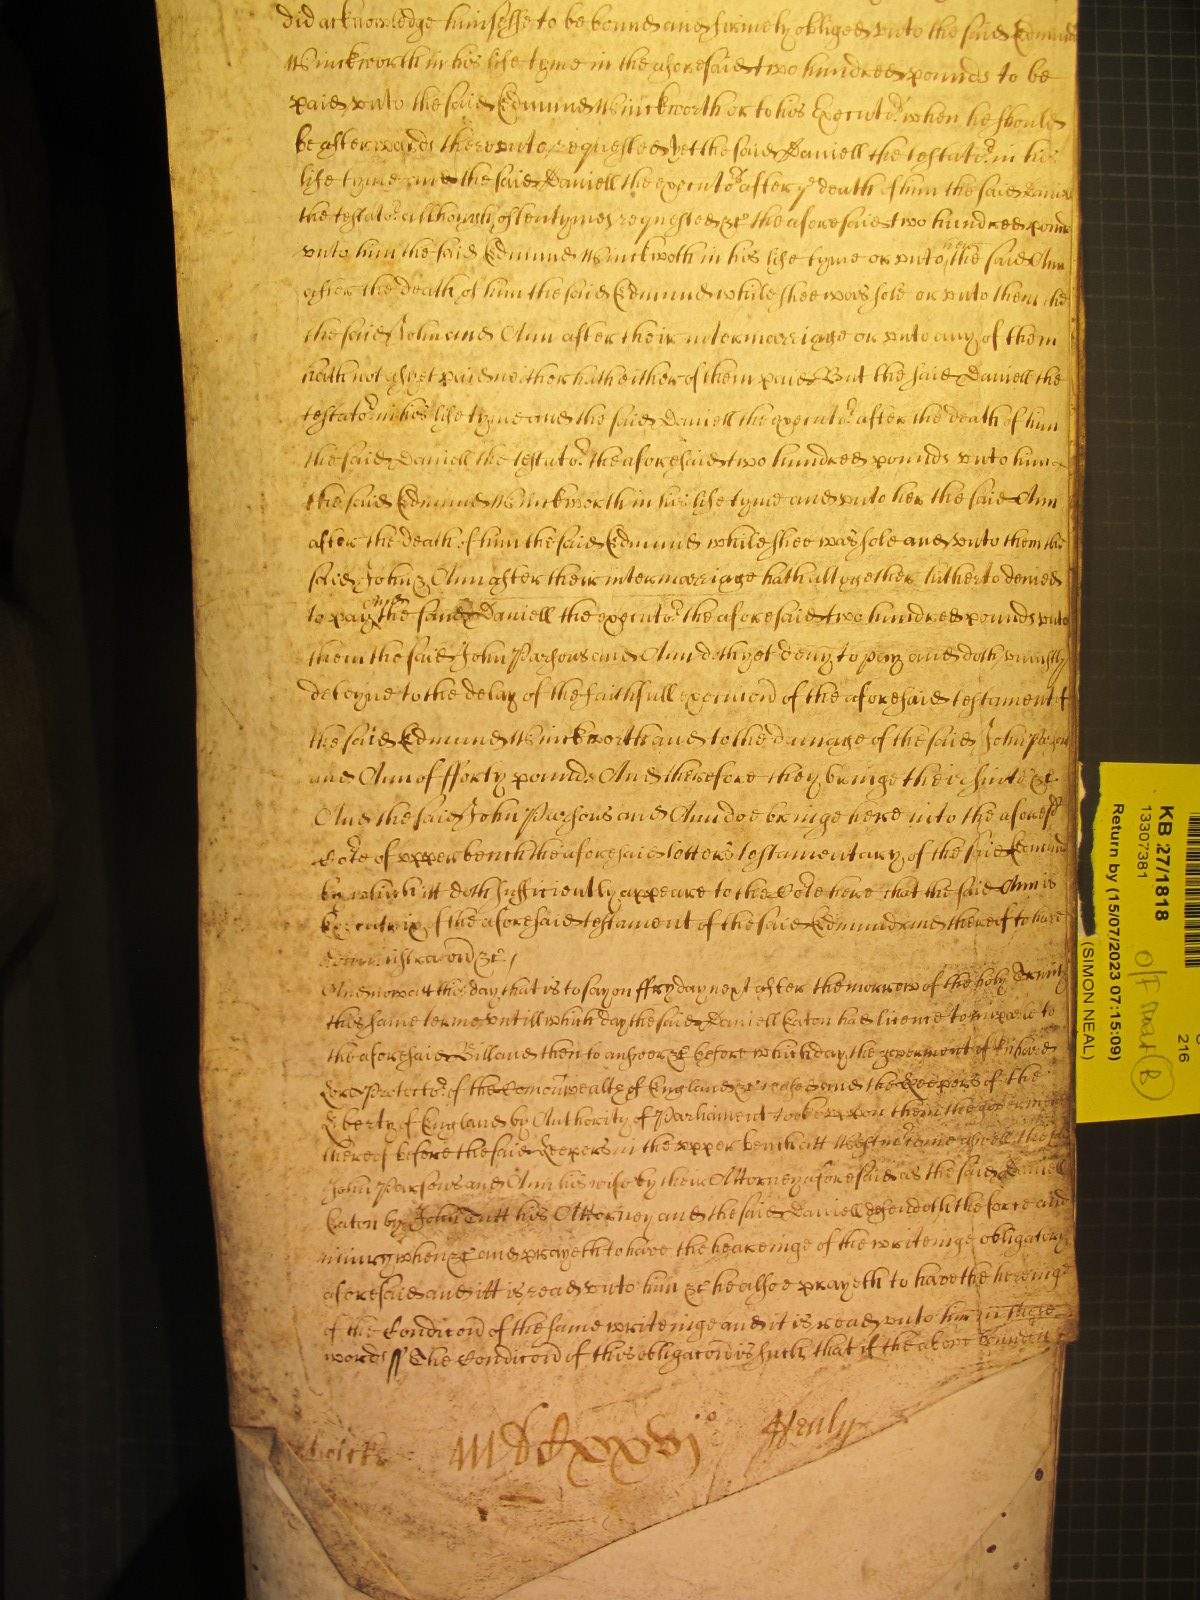 did acknowledge himselfe to be bound and firmely obliged vnto the said Edmund
Winckworth in his life tyme in the aforesaid two hundred pounds to be
paid vnto the said Edmund Winckworth or to his Execut.r when he should
be afterwards therevnto requested yet the said Daniell the testato.r in his
life tyme and the said Daniell the executo.r after ye death of him the said Daniell
the testato.r although oftentymes requested &c the aforesaid two hundred pound
vnto him the said Edmund Winckwoth in his life tyme or vnto her the said Ann
after the death of him the said Edmund while shee was sole or vnto them the
the said John and Ann after their intermarriage or vnto any of them
hath not as yet paid neither hath either of them paid But the said Daniell the
testato.r in his life tyme and the said Daniell the execut.r after the death of him
the said Daniell the testato.r the aforesaid two hundred pounds vnto him
the said Edmund Winckworth in his life tyme and vnto her the said Ann
after the death of him the said Edmund while shee was sole and vnto them the
said John & Ann after their intermarriage hath altogether hitherto denied
to pay and the said Daniell the executo.r the aforesaid two hundred pounds vnto
them the said John Parsons and Ann doth yet deny to pay and doth vniustly
deteyne to the delay of the faithfull execucion of the aforesaid testament of
the said Edmund Winckworth and to the damage of the said John Parsons
and Ann of fforty pounds And therefore they bringe their suite &c.
And the said John Parsons and Ann doe bringe here into the aforesd
Co.rte of vpper bench the aforesaid letters testamentary of the said Edmund
by which itt doth sufficiently appeare to the Co.rte here that the said Ann is
Executrix of the aforesaid testament of the said Edmund and thereof to have
Administracion &c.
And now att this day that is to say on ffryday next after the morrow of the holy Trinity
this same terme vntill which day the said Daniell Eaton had licence to imparle to
the aforesaid Bill and then to answer &c before which day the goverment of Richard
Lord Protecto.r of the Comonwealth of England &c ceased and the Keepers of the
Liberty of England by Authority of Parliament tooke vpon them the goverment
thereof before the said Keepers in the vpper bench att Westm.r came aswell the said
John Parsons and Ann his wife by their Attorney aforesaid as the said Daniell
Eaton by John Tutt his Attorney and the said Daniell defendeth the force and
iniury when &c and prayeth to have the heareinge of the writeinge obligatory
aforesaid and itt is read vnto him &c he alsoe prayeth to have the hereinge
of the Condicion of the same writeinge and it is read vnto him in these
words ff The Condicion of this obligacion is such that if the above bounden
MDCxxvjo
KB 27/1818
13307381
Return by (15/07/2023 07:15:09)
(SIMON NEAL)
216
B